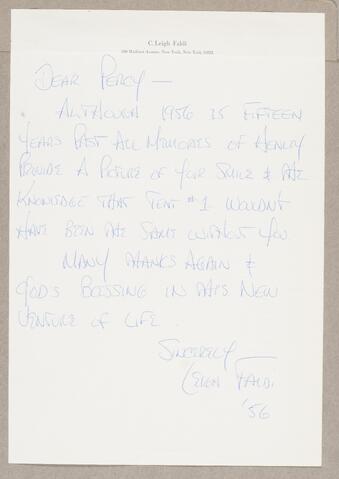 C. Leigh Faldi
Madison Avenue, New York, New York
DEAR PERCY —
ALTHOUGH 1956 IS FIFTEEN
YEARS PAST ALL MEMORIES OF HENLEY
PROVIDE A PICTURE OF YOUR SMILE & THE
KNOWLEDGE THAT TENT #1 WOULDN'T
HAVE BEEN THE SAME WITHOUT YOU
MANY THANKS AGAIN &
GOD'S BLESSING IN THIS NEW
VENTURE OF LIFE.
SINCERELY
LEIGH FALDI
'56